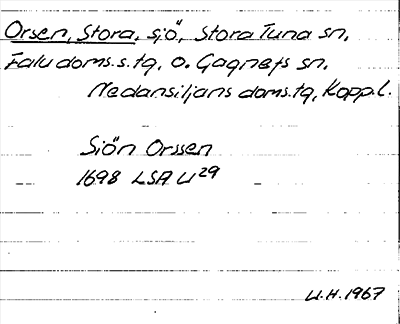 Orsen, Stora, sjö, Stora Tuna sn,
Falu doms.s.tg, o. Gagnefs sn,
Nedansiljans doms.tg, Kopp.l.
Siön Orssen
1698 LSA U29
U.H.1967